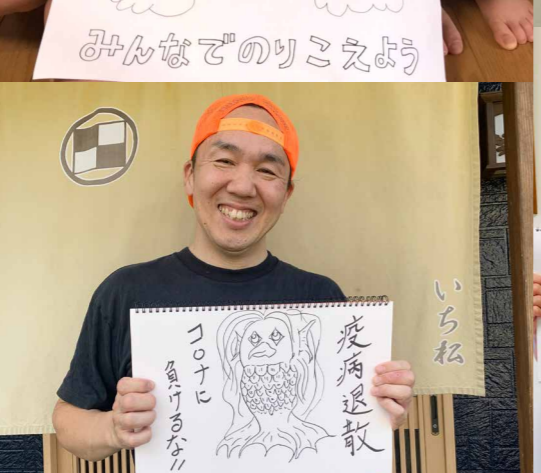 みんなでのりこえよう
いち松
疫病退散
コロナに
負けるな!!